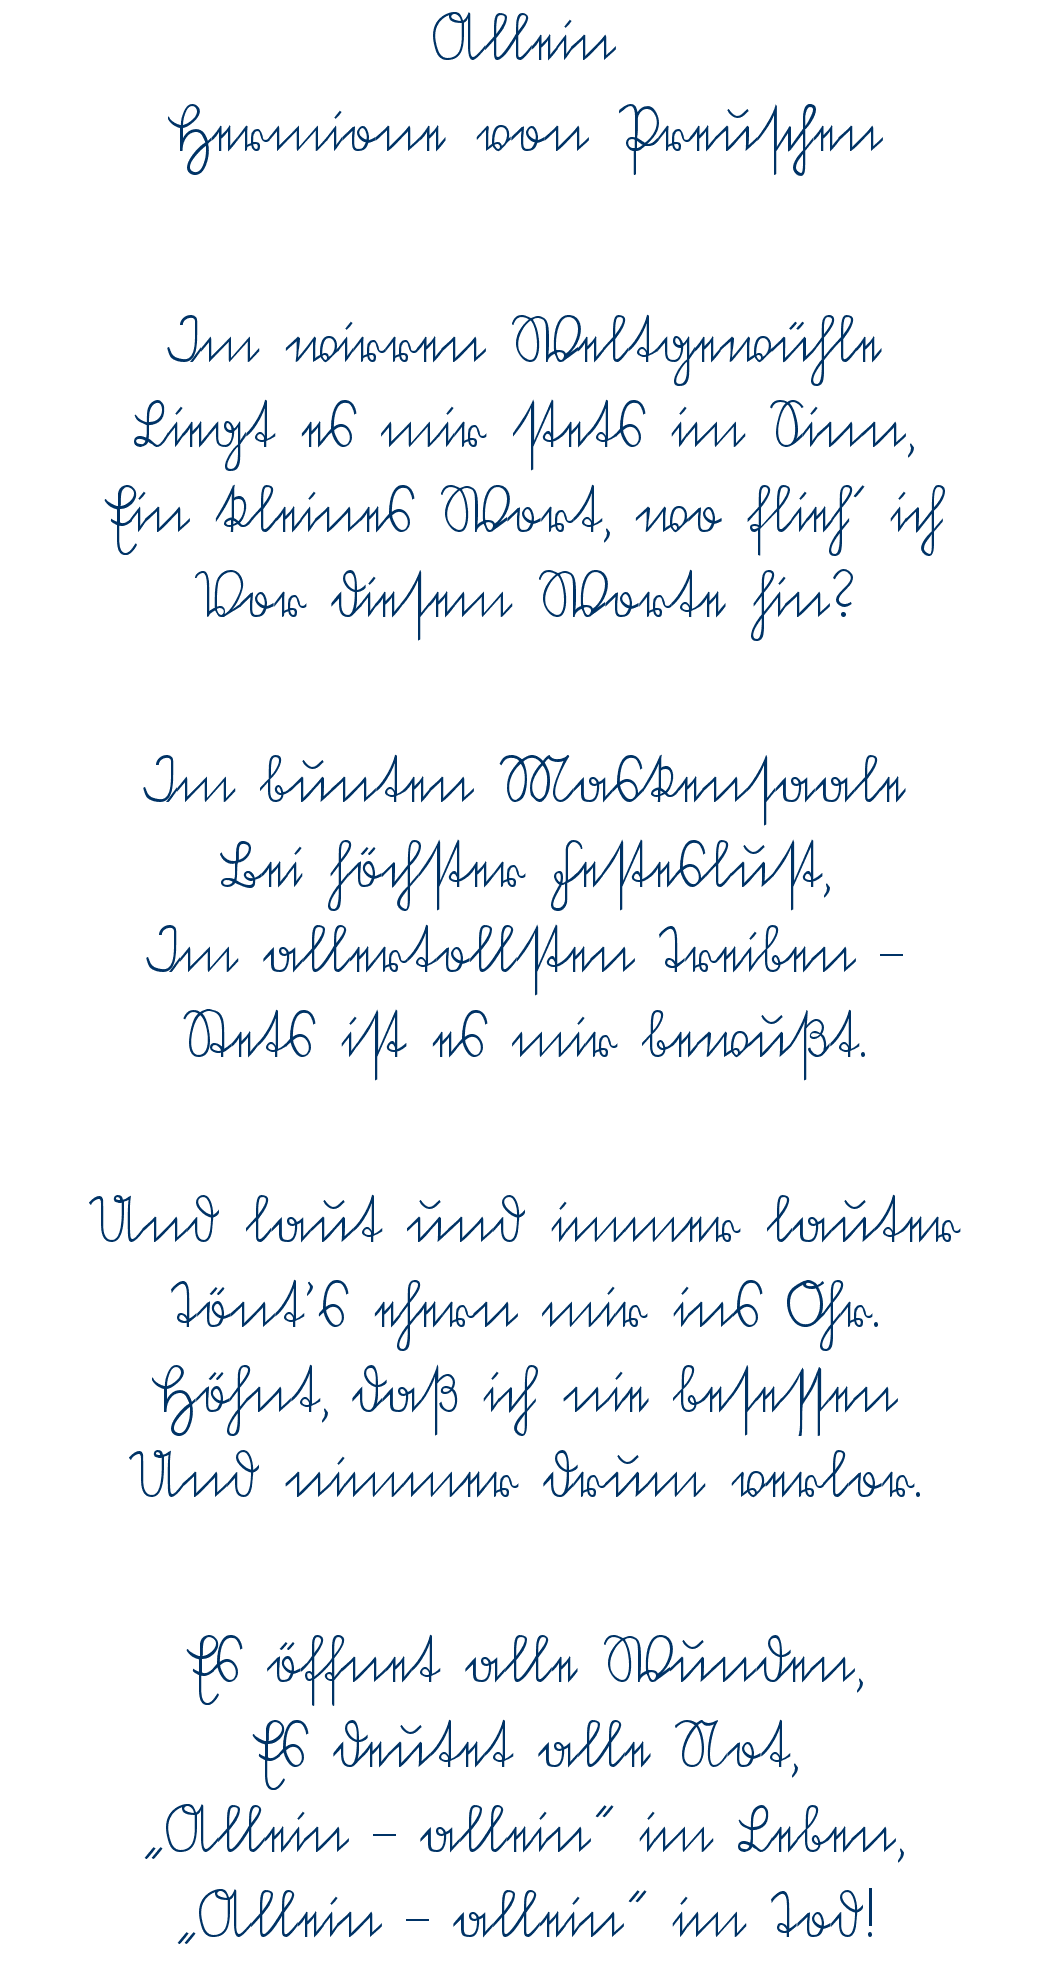 Allein
Hermione von Preuschen
Im wirren Weltgewühle
Liegt es mir stets im Sinn,
Ein kleines Wort, wo flieh´ ich
Vor diesem Worte hin?
Im bunten Maskensaale
Bei höchster Festeslust,
Im allertollsten Treiben –
Stets ist es mir bewußt.
Und laut und immer lauter
Tönt's ehern mir ins Ohr.
Höhnt, daß ich nie besessen
Und nimmer drum verlor.
Es öffnet alle Wunden,
Es deutet alle Not,
„Allein – allein“ im Leben,
„Allein – allein“ im Tod!